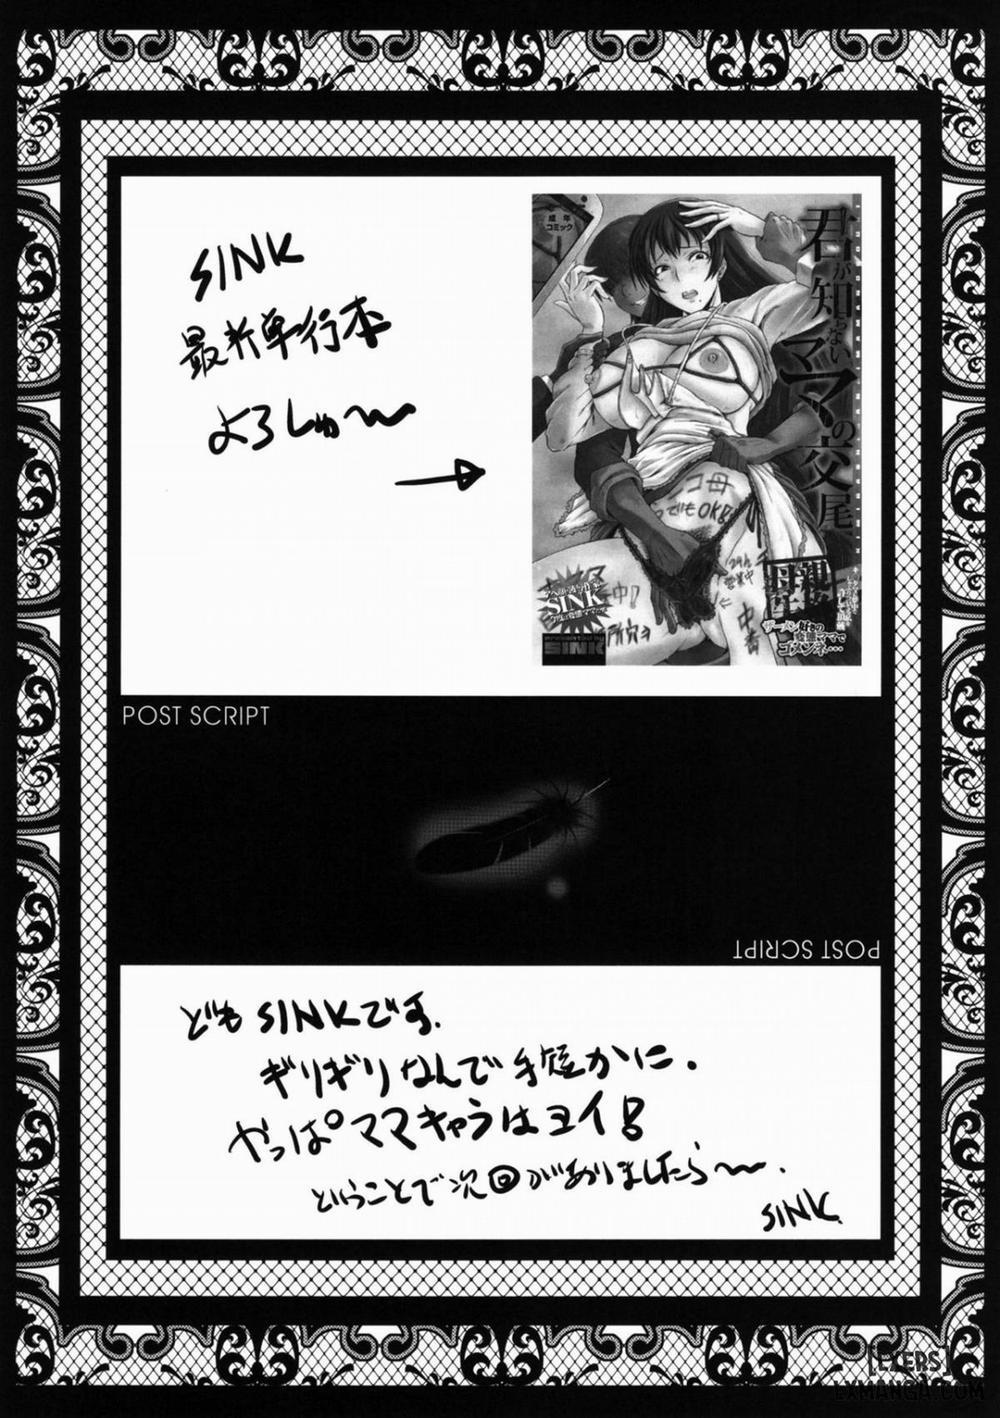 SINK
最新単行本
よろしゅ〜
→
成年
コミック
君が知らないママの交尾
SINK
SINK
ザーメン好きの
変態ママで
コメンネ…
POST SCRIPT
POST SCRIPT
ども SINKです.
ギリギリなんで手短かに.
やっぱ°ママキャラはヨイ!
ということで次回がありましたら〜.
SINK
[EXERS]
EXMANGA.COM